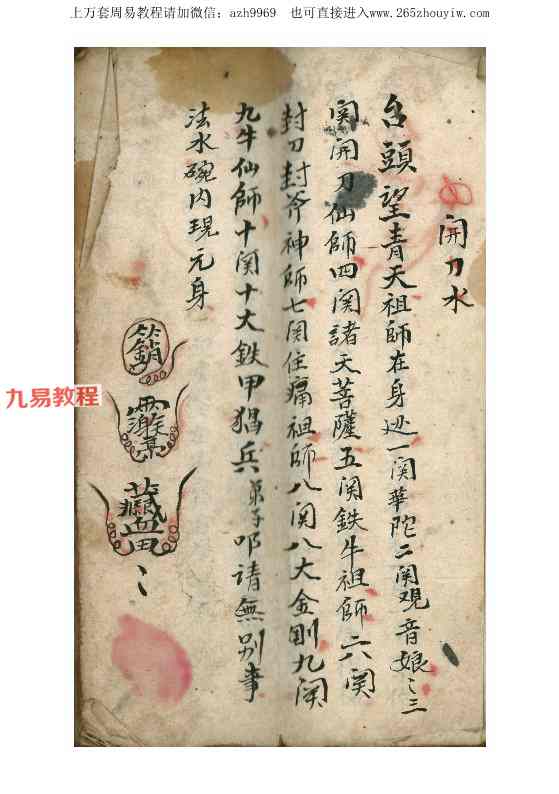 上万套周易教程请加微信：azh9969　也可直接进入www.265zhouyiw.com
開刀水
台頭望青天祖師在身边一関華陀二関观音娘〻三
関開刀仙師四関諸天菩薩五関鉄牛祖師六関
封刀封斧神師七関住痛祖師八関八大金剛九関
九牛仙師十関十大鉄甲猖兵弟子叩請無別事
法水碗内現元身
九易教程